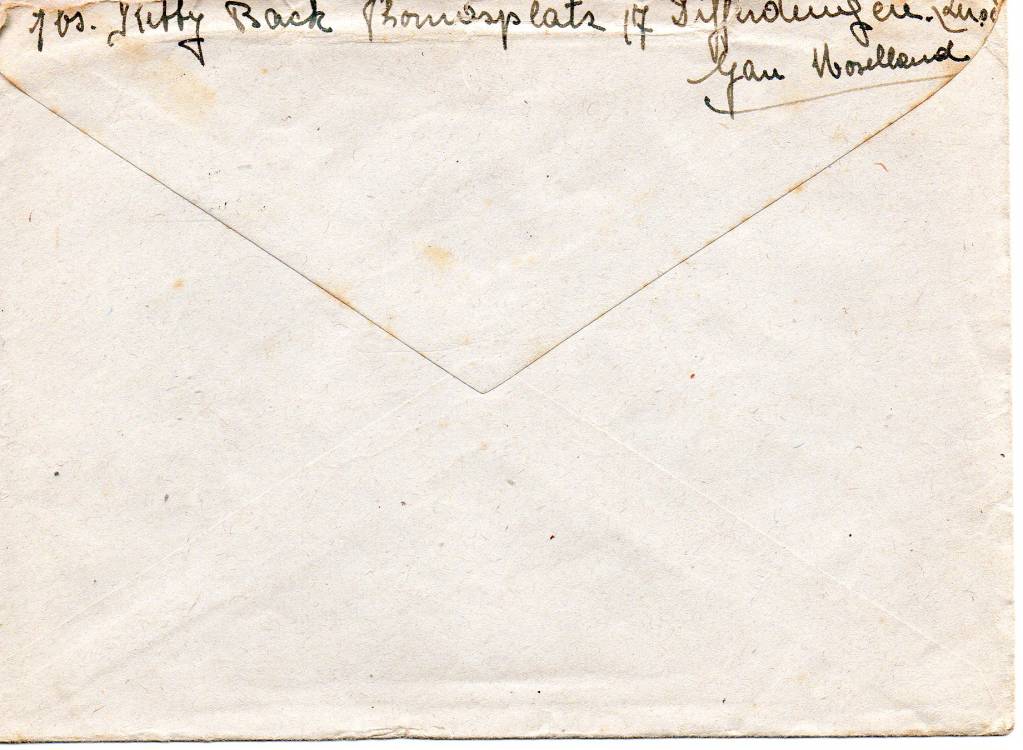 Jos. Kitty Back Thomasplatz 17 Differdingen. Lux.
Gau Moselland